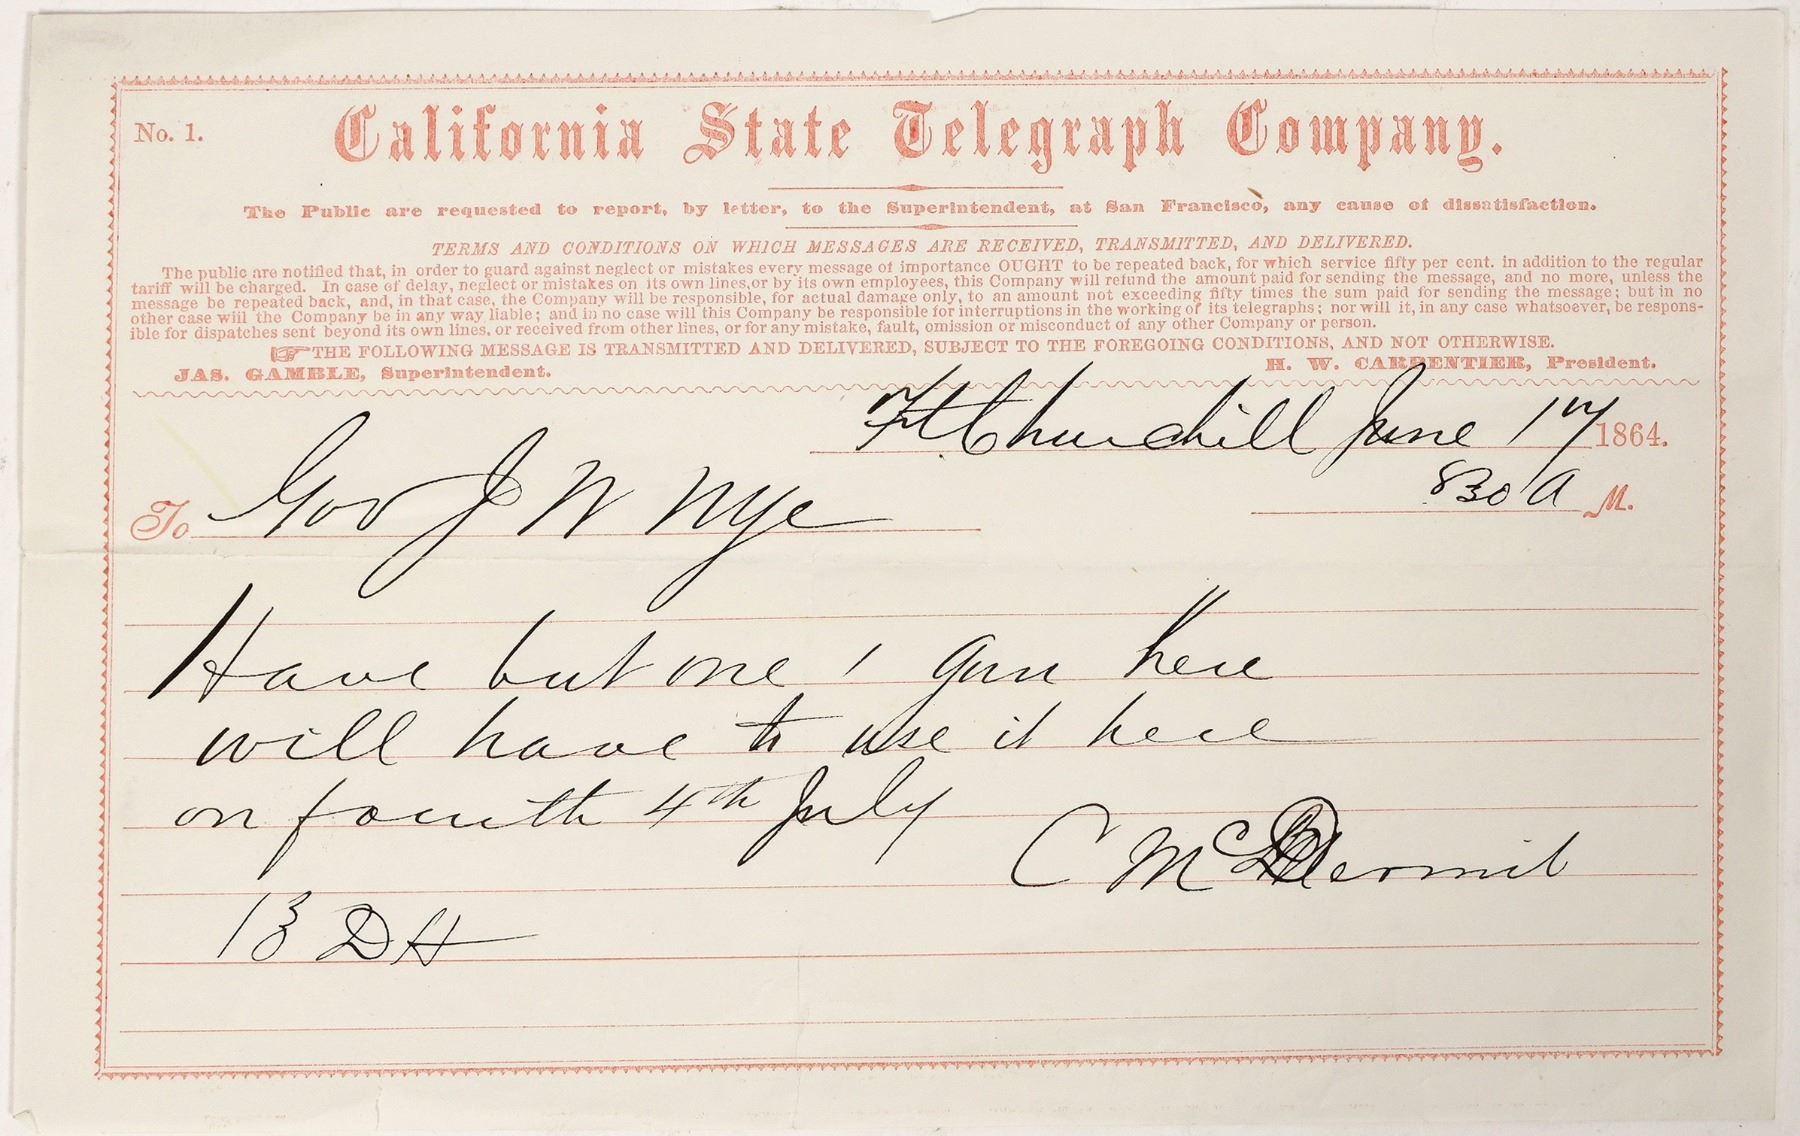 No. 1.
California State Telegraph Company.
The Public are requested to report, by letter, to the Superintendent, at San Francisco, any cause of dissatisfaction.
TERMS AND CONDITIONS ON WHICH MESSAGES ARE RECEIVED, TRANSMITTED, AND DELIVERED.
The public are notified that, in order to guard against neglect or mistakes every message of importance OUGHT to be repeated back, for which service fifty per cent. in addition to the regular
tariff will be charged. In case of delay, neglect or mistakes on its own lines, or by its own employees, this Company will refund the amount paid for sending the message, and no more, unless the
message be repeated back, and, in that case, the Company will be responsible, for actual damage only, to an amount not exceeding fifty times the sum paid for sending the message; but in no
other case will the Company be in any way liable; and in no case will this Company be responsible for interruptions in the working of its telegraphs; nor will it, in any case whatsoever, be respons-
ible for dispatches sent beyond its own lines, or received from other lines, or for any mistake, fault, omission or misconduct of any other Company or person.
☞ THE FOLLOWING MESSAGE IS TRANSMITTED AND DELIVERED, SUBJECT TO THE FOREGOING CONDITIONS, AND NOT OTHERWISE.
JAS. GAMBLE, Superintendent. H. W. CARPENTIER, President.
Ft Churchill June 17 1864.
830 A M.
To Gov J W Nye
Have but one 1 gun here
will have to use it here
on fourth 4th July
C McDermit
13 DH